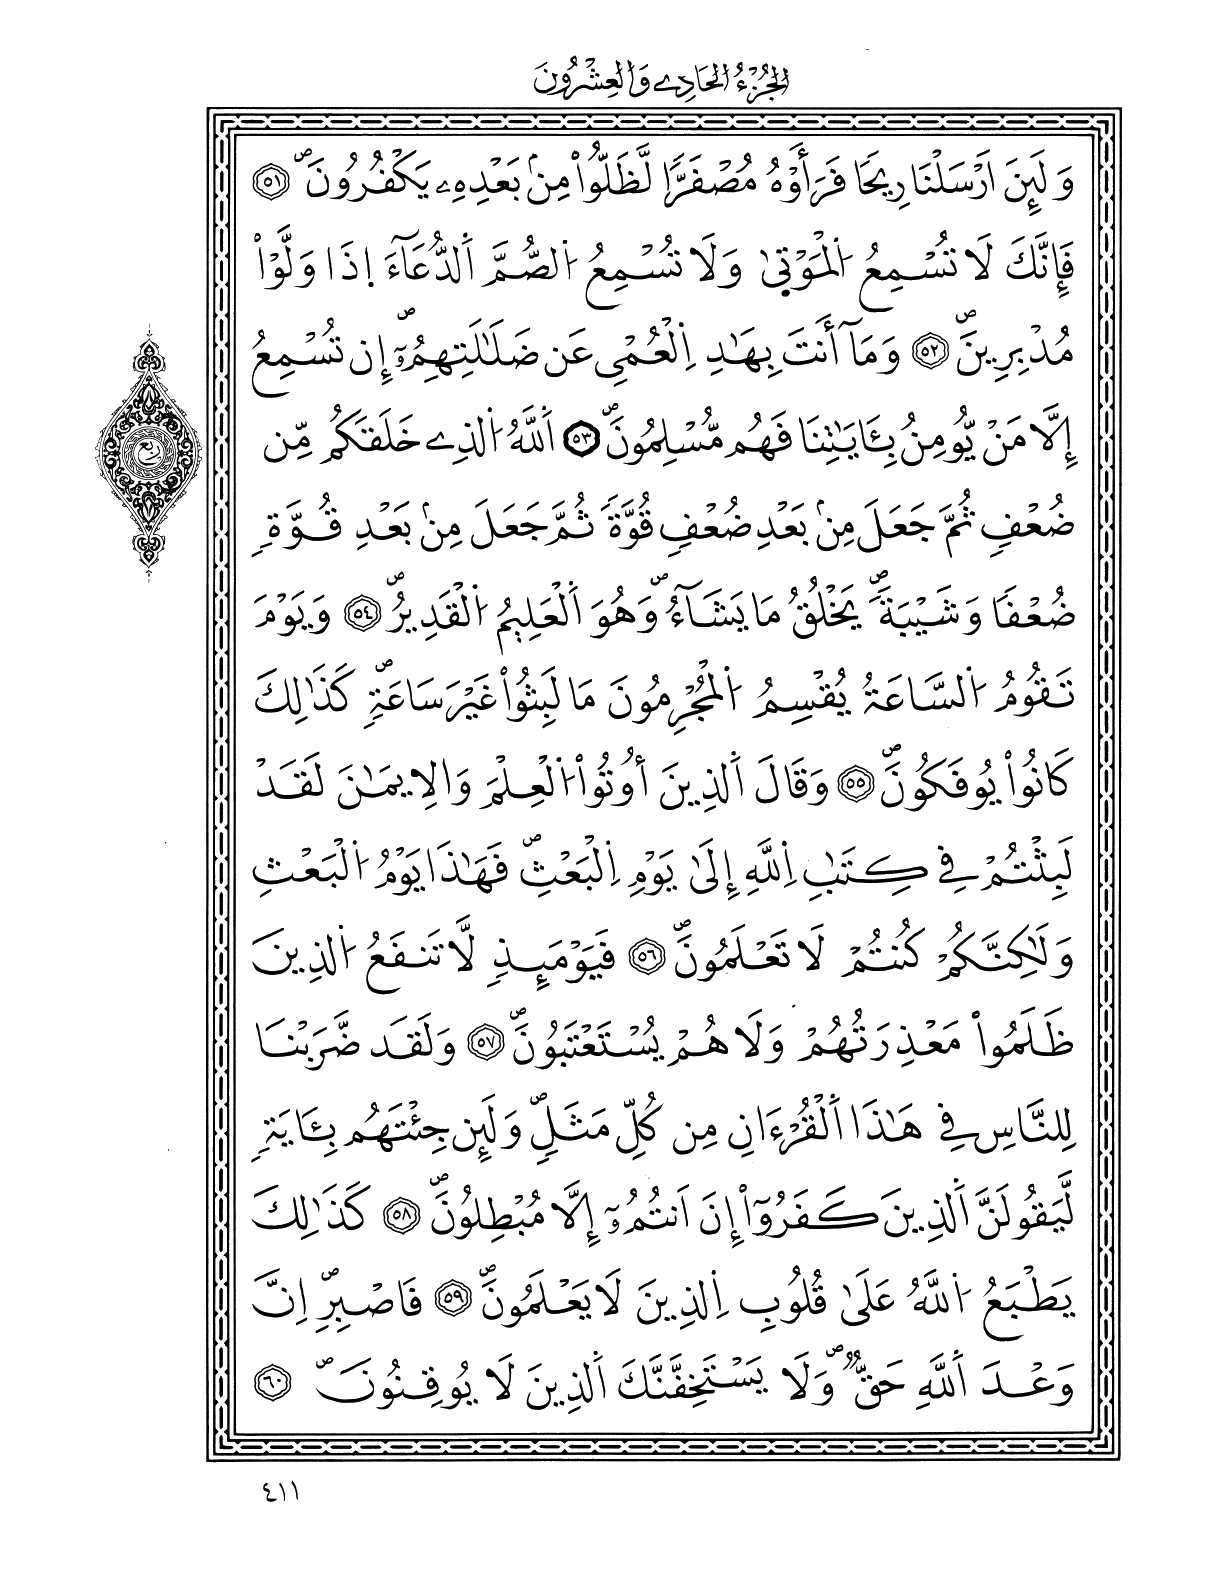 الجُزْءُ الحَادِے وَالعِشْرُونَ
وَلَئِنَ اَرْسَلْنَا رِيحًا فَرَأَوْهُ مُصْفَرًّا لَّظَلُّواْ مِنۢ بَعْدِهِۦ يَكْفُرُونَۖ ٥١
فَإِنَّكَ لَا تُسْمِعُ اُ۬لْمَوْت۪يٰ وَلَا تُسْمِعُ اُ۬لصُّمَّ اَ۬لدُّعَآءَ اِذَا وَلَّوْاْ
مُدْبِرِينَۖ ٥٢ وَمَآ أَنتَ بِهَٰدِ اِ۬لْعُمْيِ عَن ضَلَٰلَتِهِمُۥٓۖ إِن تُسْمِعُ
إِلَّا مَنْ يُّومِنُ بِـَٔايَٰتِنَا فَهُم مُّسْلِمُونَۖ ٥٣ اَ۬للَّهُ اُ۬لذِے خَلَقَكُم مِّن
ضُعْفٍ ثُمَّ جَعَلَ مِنۢ بَعْدِ ضُعْفٍ قُوَّةً ثُمَّ جَعَلَ مِنۢ بَعْدِ قُوَّةٍ
ضُعْفًا وَشَيْبَةًۖ يَخْلُقُ مَا يَشَآءُۖ وَهُوَ اَ۬لْعَلِيمُ اُ۬لْقَدِيرُۖ ٥٤ وَيَوْمَ
تَقُومُ اُ۬لسَّاعَةُ يُقْسِمُ اُ۬لْمُجْرِمُونَ مَا لَبِثُواْ غَيْرَ سَاعَةٍۖ كَذَٰلِكَ
كَانُواْ يُوفَكُونَۖ ٥٥ وَقَالَ اَ۬لذِينَ أُوتُواْ اُ۬لْعِلْمَ وَالِايمَٰنَ لَقَدْ
لَبِثْتُمْ فِے كِتَٰبِ اِ۬للَّهِ إِلَىٰ يَوْمِ اِ۬لْبَعْثِۖ فَهَٰذَا يَوْمُ اُ۬لْبَعْثِ
وَلَٰكِنَّكُمْ كُنتُمْ لَا تَعْلَمُونَۖ ٥٦ فَيَوْمَئِذٍ لَّا تَنفَعُ اُ۬لذِينَ
ظَلَمُواْ مَعْذِرَتُهُمْ وَلَا هُمْ يُسْتَعْتَبُونَۖ ٥٧ وَلَقَد ضَّرَبْنَا
لِلنَّاسِ فِے هَٰذَا اَ۬لْقُرْءَانِ مِن كُلِّ مَثَلٍۖ وَلَئِن جِئْتَهُم بِـَٔايَةٍ
لَّيَقُولَنَّ اَ۬لذِينَ كَفَرُوٓاْ إِنَ اَنتُمُۥٓ إِلَّا مُبْطِلُونَۖ ٥٨ كَذَٰلِكَ
يَطْبَعُ اُ۬للَّهُ عَلَىٰ قُلُوبِ اِ۬لذِينَ لَا يَعْلَمُونَۖ ٥٩ فَاصْبِرِۖ اِنَّ
وَعْدَ اَ۬للَّهِ حَقٌّۖ وَلَا يَسْتَخِفَّنَّكَ اَ۬لذِينَ لَا يُوقِنُونَۖ ٦٠
ربع
٤١١